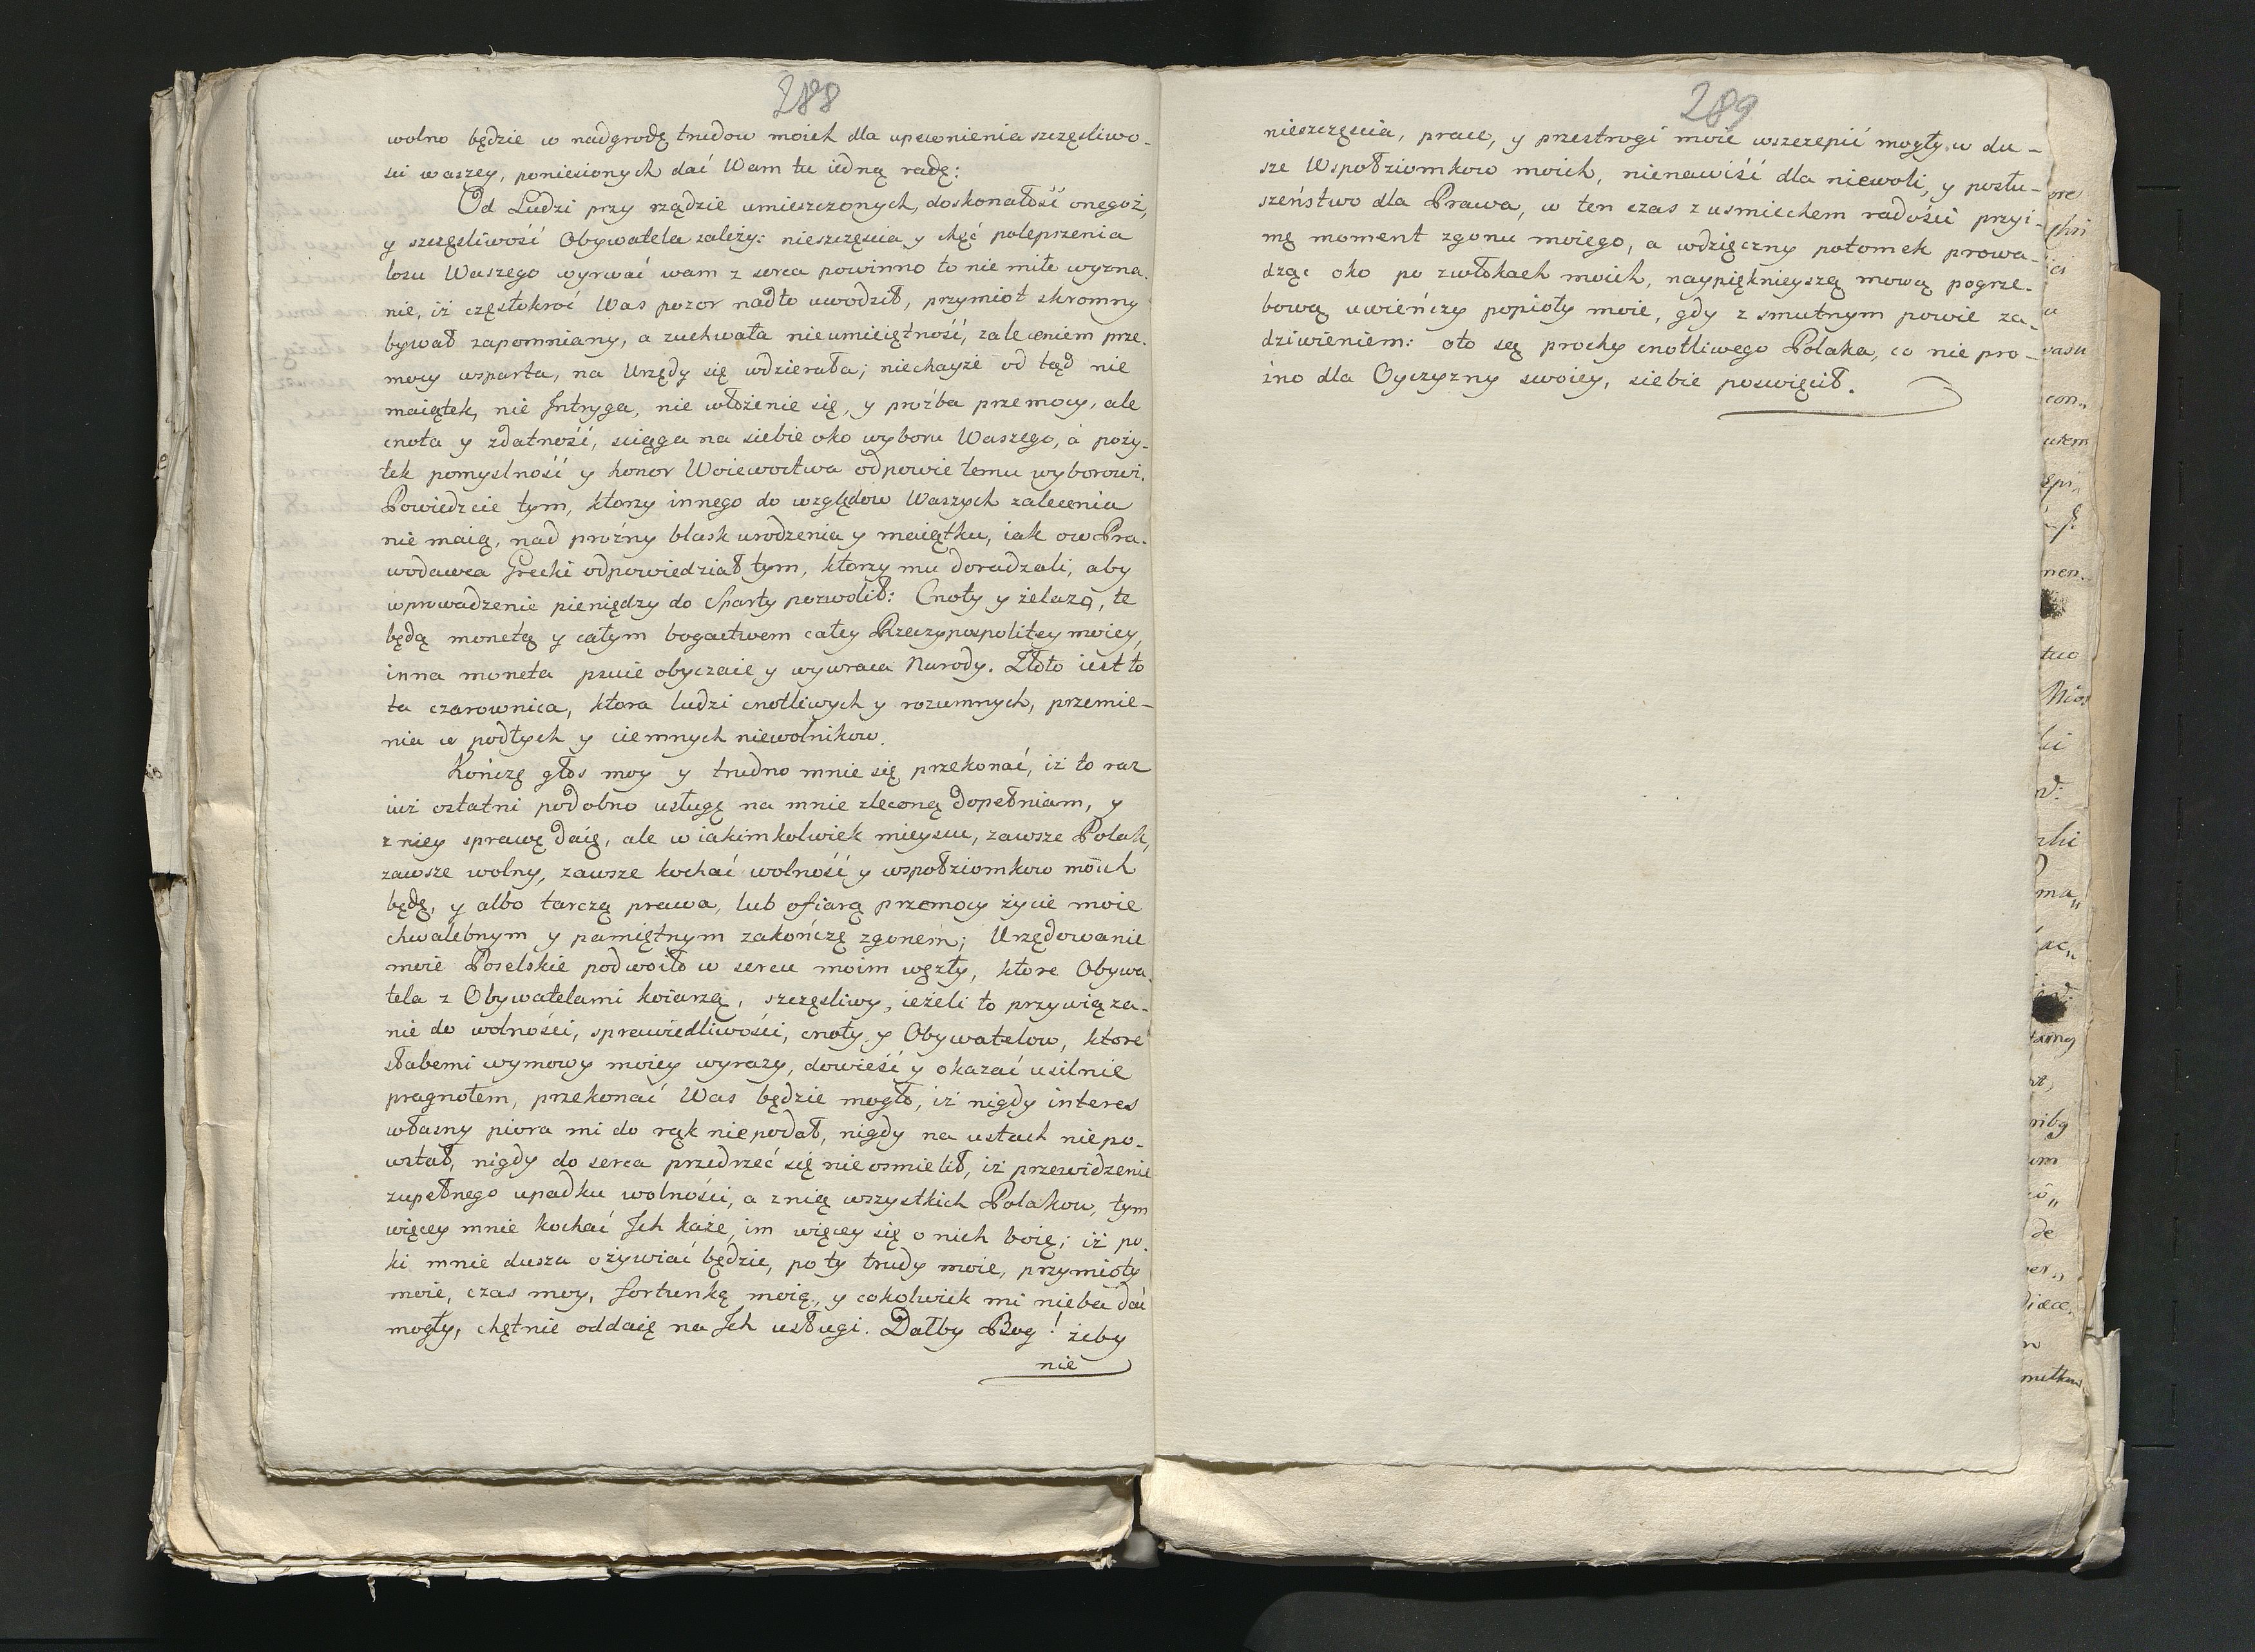 288
wolno będzie w nadgrodę trudow moich dla upewnienia szczęsliwo-
sci waszey, poniesionych dać Wam tu iedną radę:
Od Ludzi przy rządzie umieszczonych, doskonałość onegoż,
y szczęsliwość Obywatela zależy: nieszczęscia y chęć polepszenia
losu Waszego wyrwać wam z serca powinno to nie miłe wyzna-
nie, iż częstokroć Was pozor nadto uwodził, przymiot skromny
bywał zapomniany, a zuchwała nieumieiętność, zaleceniem prze-
mocy wsparta, na Urzędy się wdzierała; niechayże od tąd nie
maiątek, nie Intryga, nie włożenie się, y proźba przemocy, ale
cnota y zdatność, sciąga na siebie oko wyboru Waszego, a poży-
tek pomyslność y honor Woiewoctwa odpowie temu wyborowi.
Powiedzcie tym, ktorzy innego do względow Waszych zalecenia
nie maią, nad prożny blask urodzenia y maiątku, iak ow Pra-
wodawca Grecki odpowiedział tym, ktorzy mu doradzali, aby
wprowadzenie pieniędzy do Sparty pozwolił: Cnoty y żelazo, te
będą monetą y całym bogactwem całey Rzeczypospolitey moiey,
inna moneta psuie obyczaie y wywraca Narody. Złoto iest to
ta czarownica, ktora ludzi cnotliwych y rozumnych, przemie-
nia w podłych y ciemnych niewolnikow.
Kończę głos moy y trudno mnie się przekonać, iż to raz
iuż ostatni podobno usługę na mnie zleconą dopełniam, y
z niey sprawę daię, ale w iakimkolwiek mieyscu, zawsze Polak,
zawsze wolny, zawsze kochać wolność y wspołziomkow moich
będę, y albo tarczą prawa, lub ofiarą przemocy życie moie
chwalebnym y pamiętnym zakończę zgonem; Urzędowanie
moie Poselskie podwoiło w sercu moim węzły, ktore Obywa-
tela z Obywatelami koiarzą, szczęsliwy, ieżeli to przywiąza-
nie do wolności, sprawiedliwości, cnoty y Obywatelow, ktore
słabemi wymowy moiey wyrazy, dowieść y okazać usilnie
pragnołem, przekonać Was będzie mogło, iż nigdy interes
własny piora mi do rąk nie podał, nigdy na ustach nie po-
wstał, nigdy do serca przedrzeć się nie osmielił, iż przewidzenie
zupełnego upadku wolności, a z nią wszystkich Polakow, tym
więcey mnie kochać Ich każe, im więcey się o nich boię; iż po-
ki mnie dusza ożywiać będzie, po ty trudy moie, przymioty
moie, czas moy, fortunkę moię, y cokolwiek mi nieba dać
mogły, chętnie oddaię na Ich usługi. Dałby Bog! żeby
nie
289
nieszczęscia, prace, y przestrogi moie wszczepić mogły w du-
sze Wspołziomkow moich, nienawiść dla niewoli, y posłu-
szeństwo dla Prawa, w ten czas z usmiechem radości przyi-
mę moment zgonu moiego, a wdzięczny potomek prowa-
dząc oko po zwłokach moich, naypięknieyszą mową pogrze-
bową uwieńczy popioły moie, gdy z smutnym powie za-
dziwieniem: oto są prochy cnotliwego Polaka, co nie pro-
żno dla Oyczyzny swoiey, siebie poswięcił.